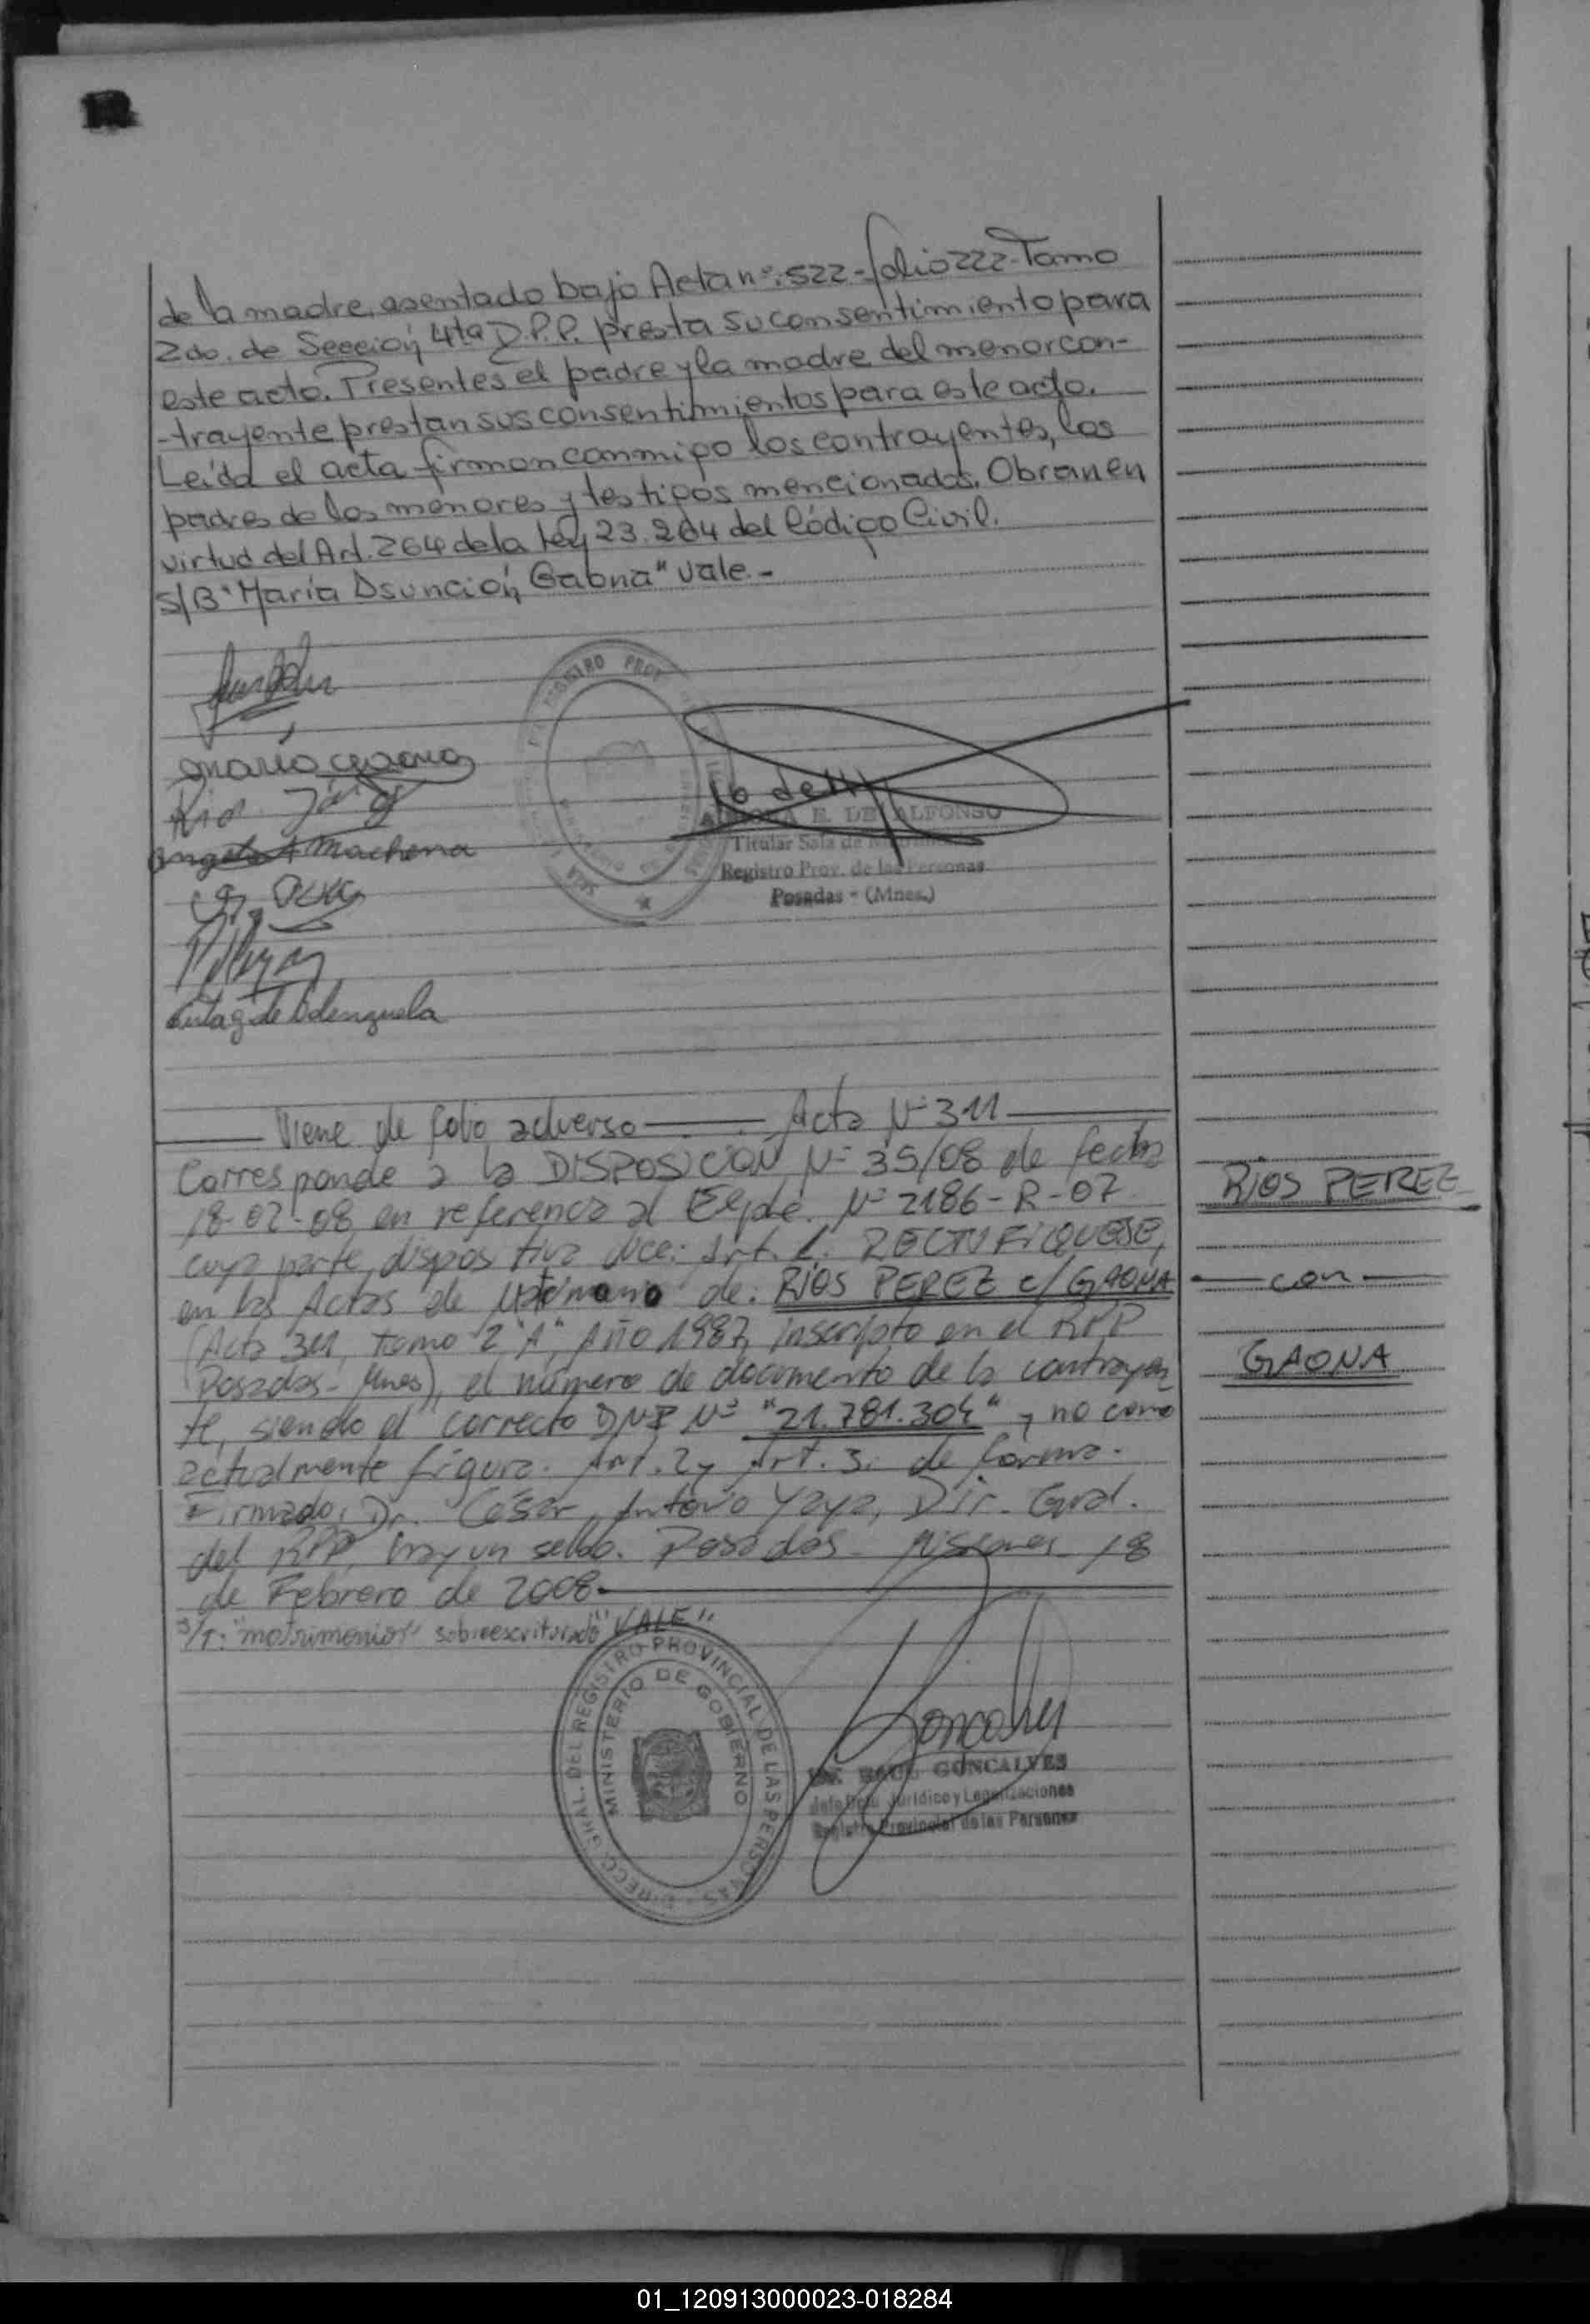 de la madre, asentado bajo Acta nº: 522 - folio 222 - Tomo
2do. de Sección 4ta D.P.P. presta su consentimiento para
este acto. Presentes el padre y la madre del menor con-
-trayente prestan sus consentimientos para este acto.
Leída el acta firman conmigo los contrayentes, los
padres de los menores y testigos mencionados. Obran en
virtud del Art. 264 de la ley 23.264 del Código Civil.
S/B "María Asunción Gaona" vale.-
María Gaona
Rios
Angela Machena
de Valenzuela
REGISTRO PROV
E. DE ALFONSO
Titular Sala de
Registro Prov. de las Personas
Posadas - (Mnes.)
Viene de folio adverso Acta Nº 311
Corresponde a la DISPOSICION Nº 35/08 de fecha
18-02-08 en referencia al Expte. Nº 2186-R-07
cuya parte dispositiva dice: Art. 1. RECTIFIQUESE,
en las Actas de Matrimonio de: RIOS PEREZ c/ GAONA
(Acta 311, Tomo 2 "A", Año 1987, inscripto en el RPP
Posadas - Mnes), el número de documento de la contrayen
te, siendo el correcto DNI Nº "21.781.304" y no como
actualmente figura. Art. 2 y Art. 3. de forma.
Firmado, Dr. César Antonio Yaya, Dir. Gral.
del RPP, hay un sello. Posadas - Misiones 18
de Febrero de 2008.
S/T: "matrimonio" sobreescriturado "VALE"
RIOS PEREZ
con
GAONA
DIRECC. GRAL. DEL REGISTRO PROVINCIAL DE LAS PERSONAS
MINISTERIO DE GOBIERNO
Goncalves
RAUL GONCALVES
Jefe Dpto. Jurídico y Legalizaciones
Registro Provincial de las Personas
01_120913000023-018284